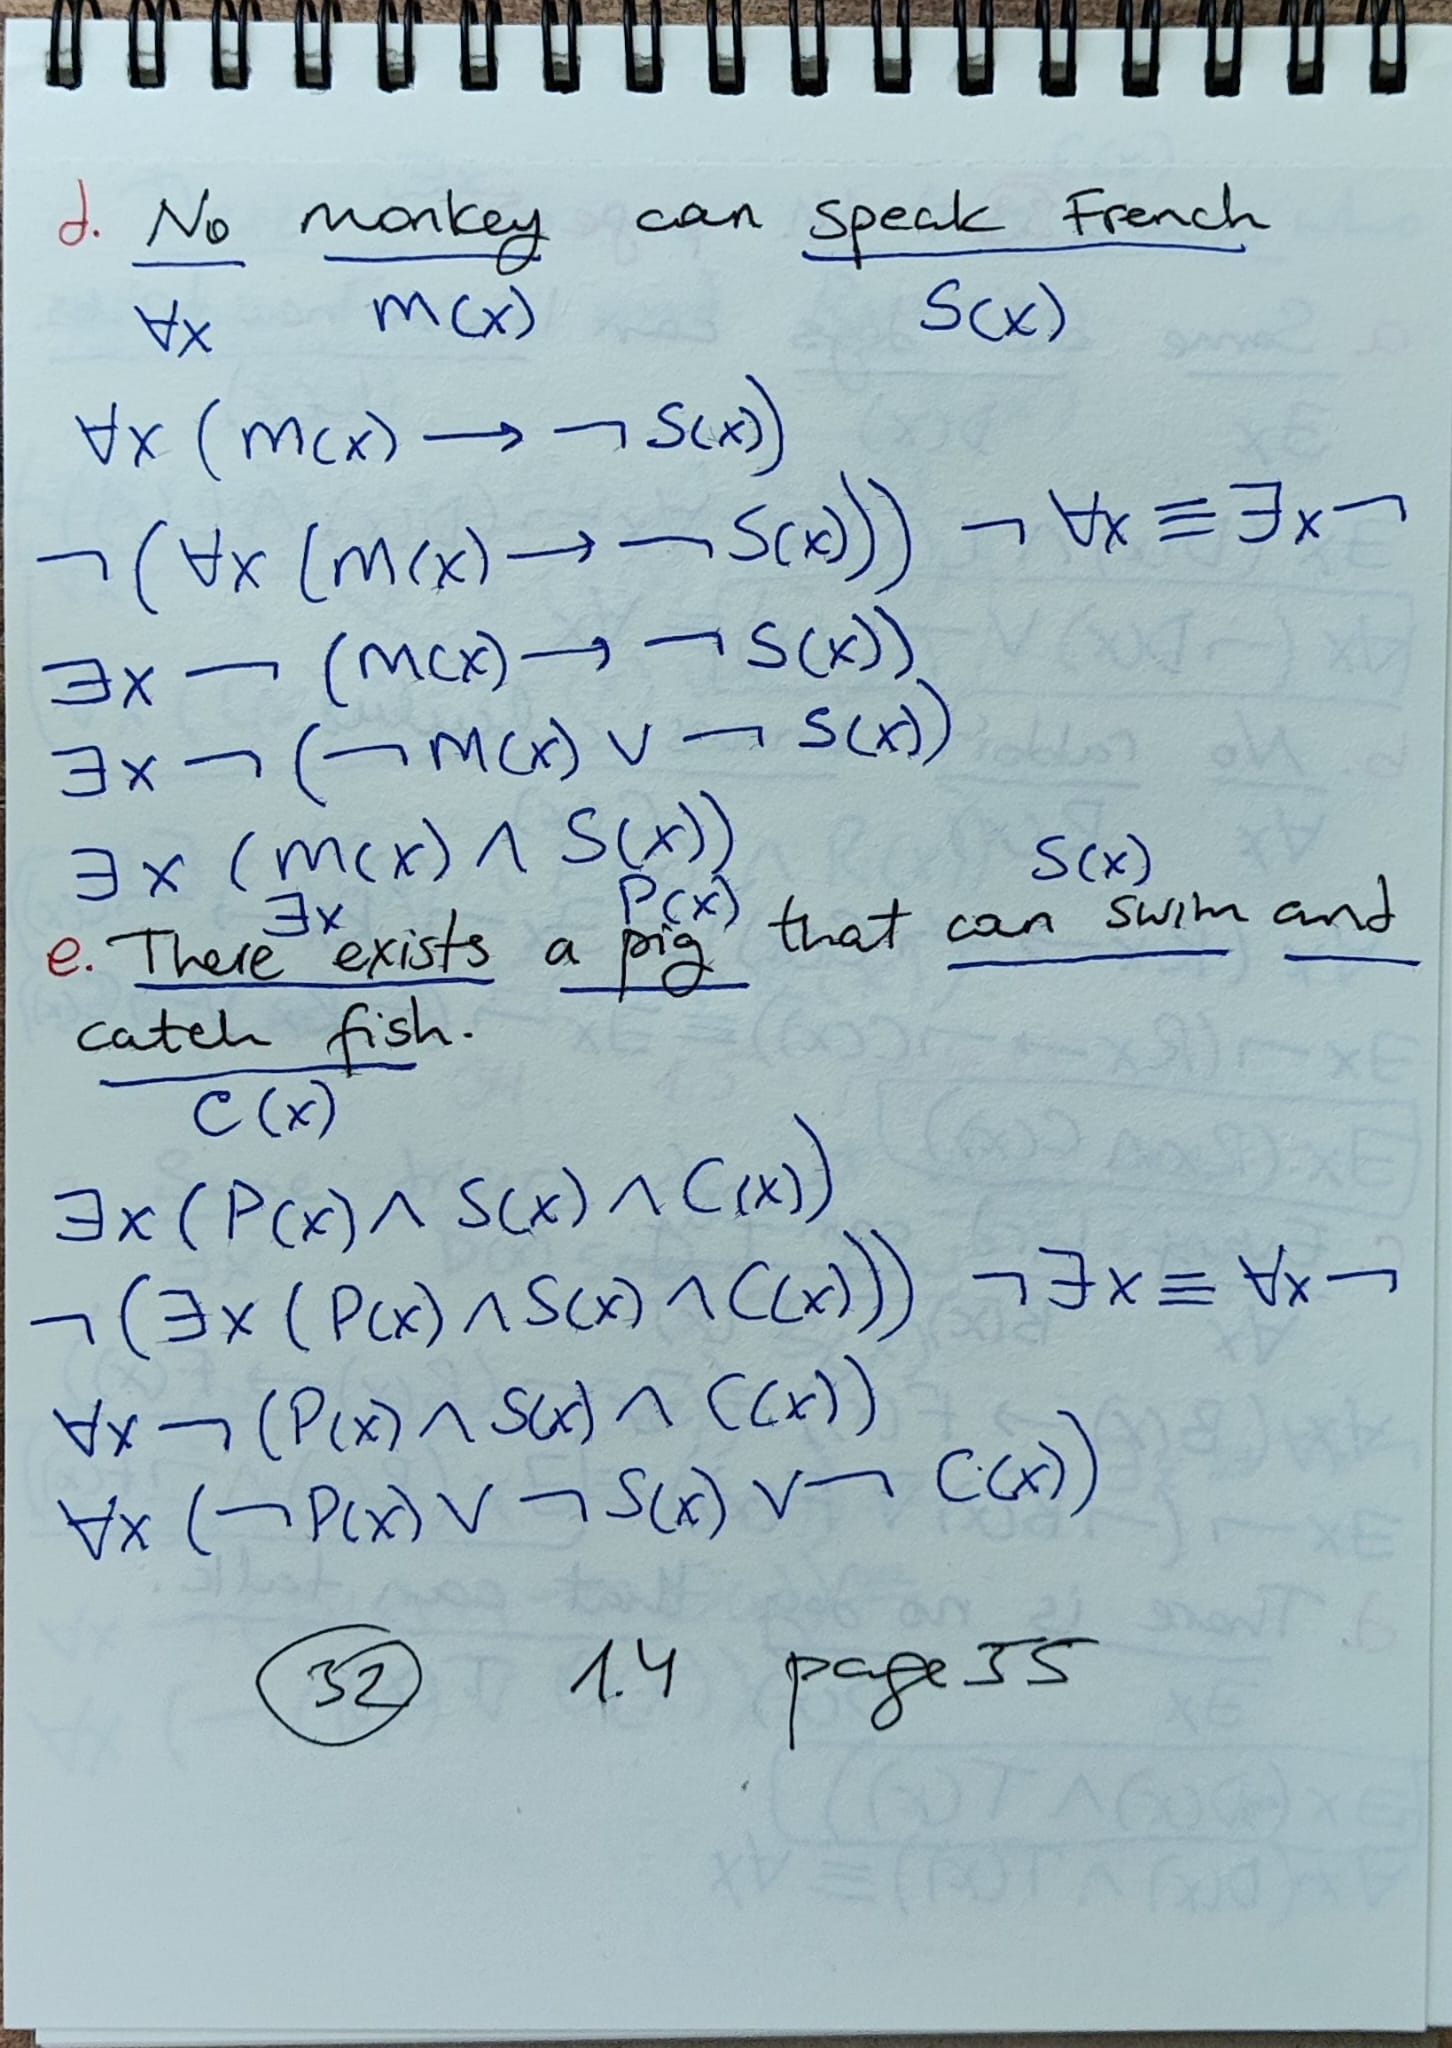 d. No monkey can speak French
∀x M(x) S(x)
∀x (M(x) → ¬ S(x))
¬ (∀x (M(x) → ¬ S(x))) ¬ ∀x ≡ ∃x ¬
∃x ¬ (M(x) → ¬ S(x))
∃x ¬ (¬ M(x) ∨ ¬ S(x))
∃x (M(x) ∧ S(x))
∃x P(x) S(x)
e. There exists a pig that can swim and
catch fish.
C(x)
∃x (P(x) ∧ S(x) ∧ C(x))
¬ (∃x (P(x) ∧ S(x) ∧ C(x))) ¬ ∃x ≡ ∀x ¬
∀x ¬ (P(x) ∧ S(x) ∧ C(x))
∀x (¬ P(x) ∨ ¬ S(x) ∨ ¬ C(x))
32 1.4 page 35